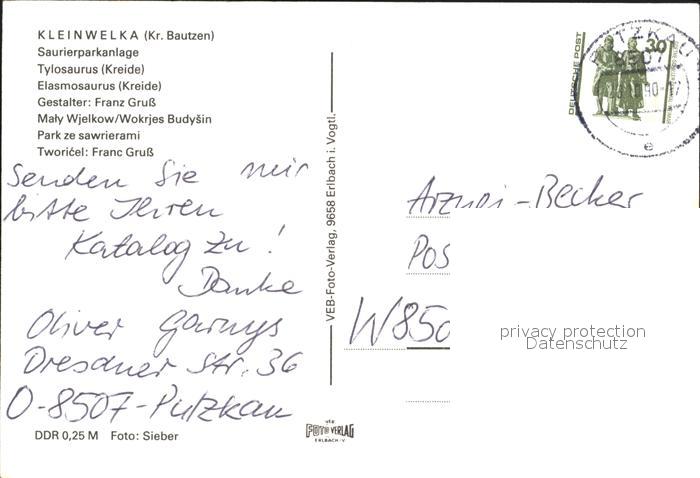 KLEINWELKA (Kr. Bautzen)
Saurierparkanlage
Tylosaurus (Kreide)
Elasmosaurus (Kreide)
Gestalter: Franz Gruß
Mały Wjelkow/Wokrjes Budyšin
Park ze sawrierami
Tworićel: Franc Gruß
Senden Sie mir
bitte Ihren
Katalog zu!
Danke
Oliver
Dresdner Str. 36
O-8507-Putzkau
DDR 0,25 M Foto: Sieber
VEB-Foto-Verlag, 9658 Erlbach i. Vogtl.
VEB
FOTO VERLAG
ERLBACH/V
DEUTSCHE POST
30
PUTZKAU
8507
90-17
e
-Becker
Pos
W850
privacy protection
Datenschutz